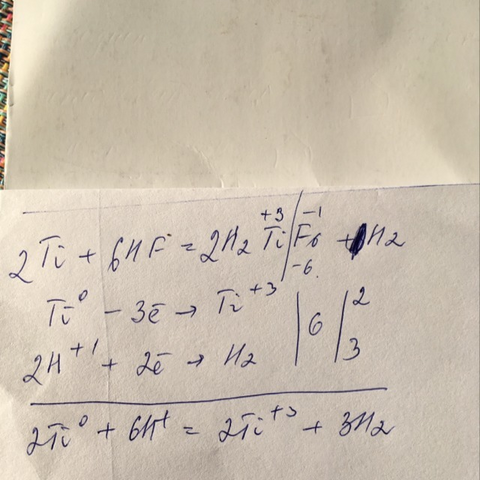 2Ti + 6HF = 2H₂ Ti⁺³|F₆⁻¹ + H₂
-6
Ti⁰ - 3ē → Ti⁺³ | 6 | 2
2H⁺¹ + 2ē → H₂ 3
2Ti⁰ + 6H⁺ = 2Ti⁺³ + 3H₂